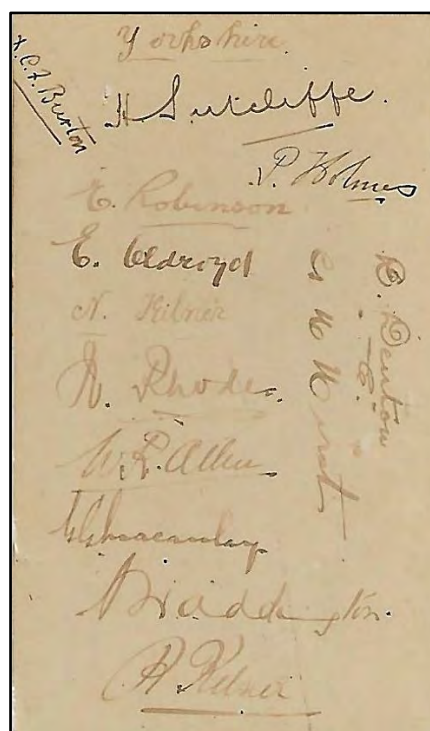 Yorkshire.
D.C.F. Burton
H Sutcliffe.
P. Holmes
E. Robinson
E. Oldroyd
N. Kilner
W. Rhodes.
W.R. Allen
G G Macaulay
A Waddington.
R. Kilner
G H Hirst
D. Denton